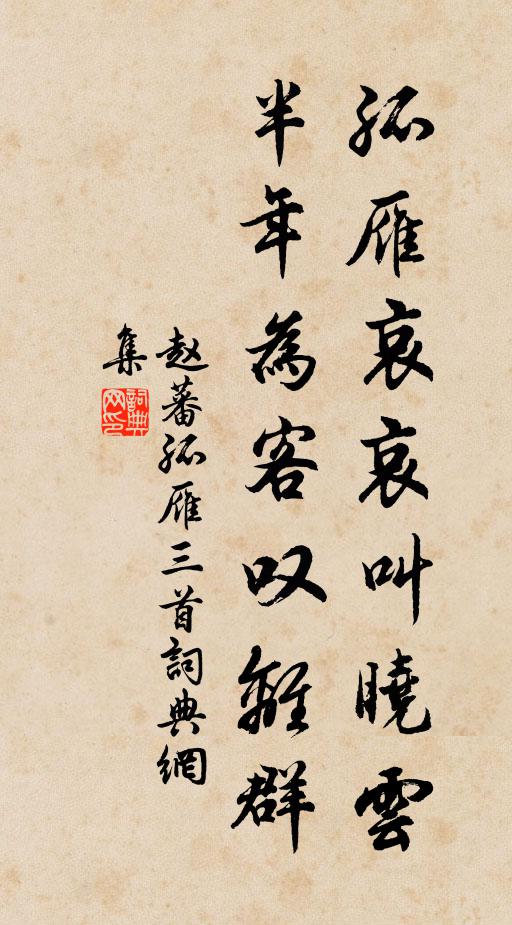 孤雁哀哀叫曉雲
半年為客叹離群
赵蕃孤雁三首詞典網
集
詞典
网印